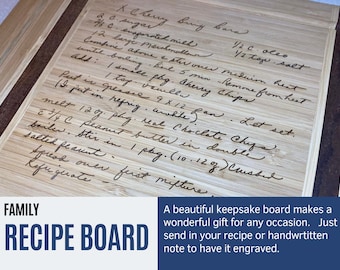 Cherry Bing Bars
2 C sugar
1/2 C oleo
1/2 tsp salt
12 large Marshmallows
Combine above & stir over medium heat
until boiling 5 min. Remove from heat
Add: 1 small pkg Cherry Chips
1 tsp vanilla
Pour in greased 9 x 12 pan. Let set
melt 12 oz pkg Chocolate Chips
peanut butter in double
boiler. Stir in 1 pkg (10-12 oz) crushed
salted peanuts.
Spread over first mixture
refrigerate
FAMILY
RECIPE BOARD
A beautiful keepsake board makes a
wonderful gift for any occasion. Just
send in your recipe or handwrtitten
note to have it engraved.